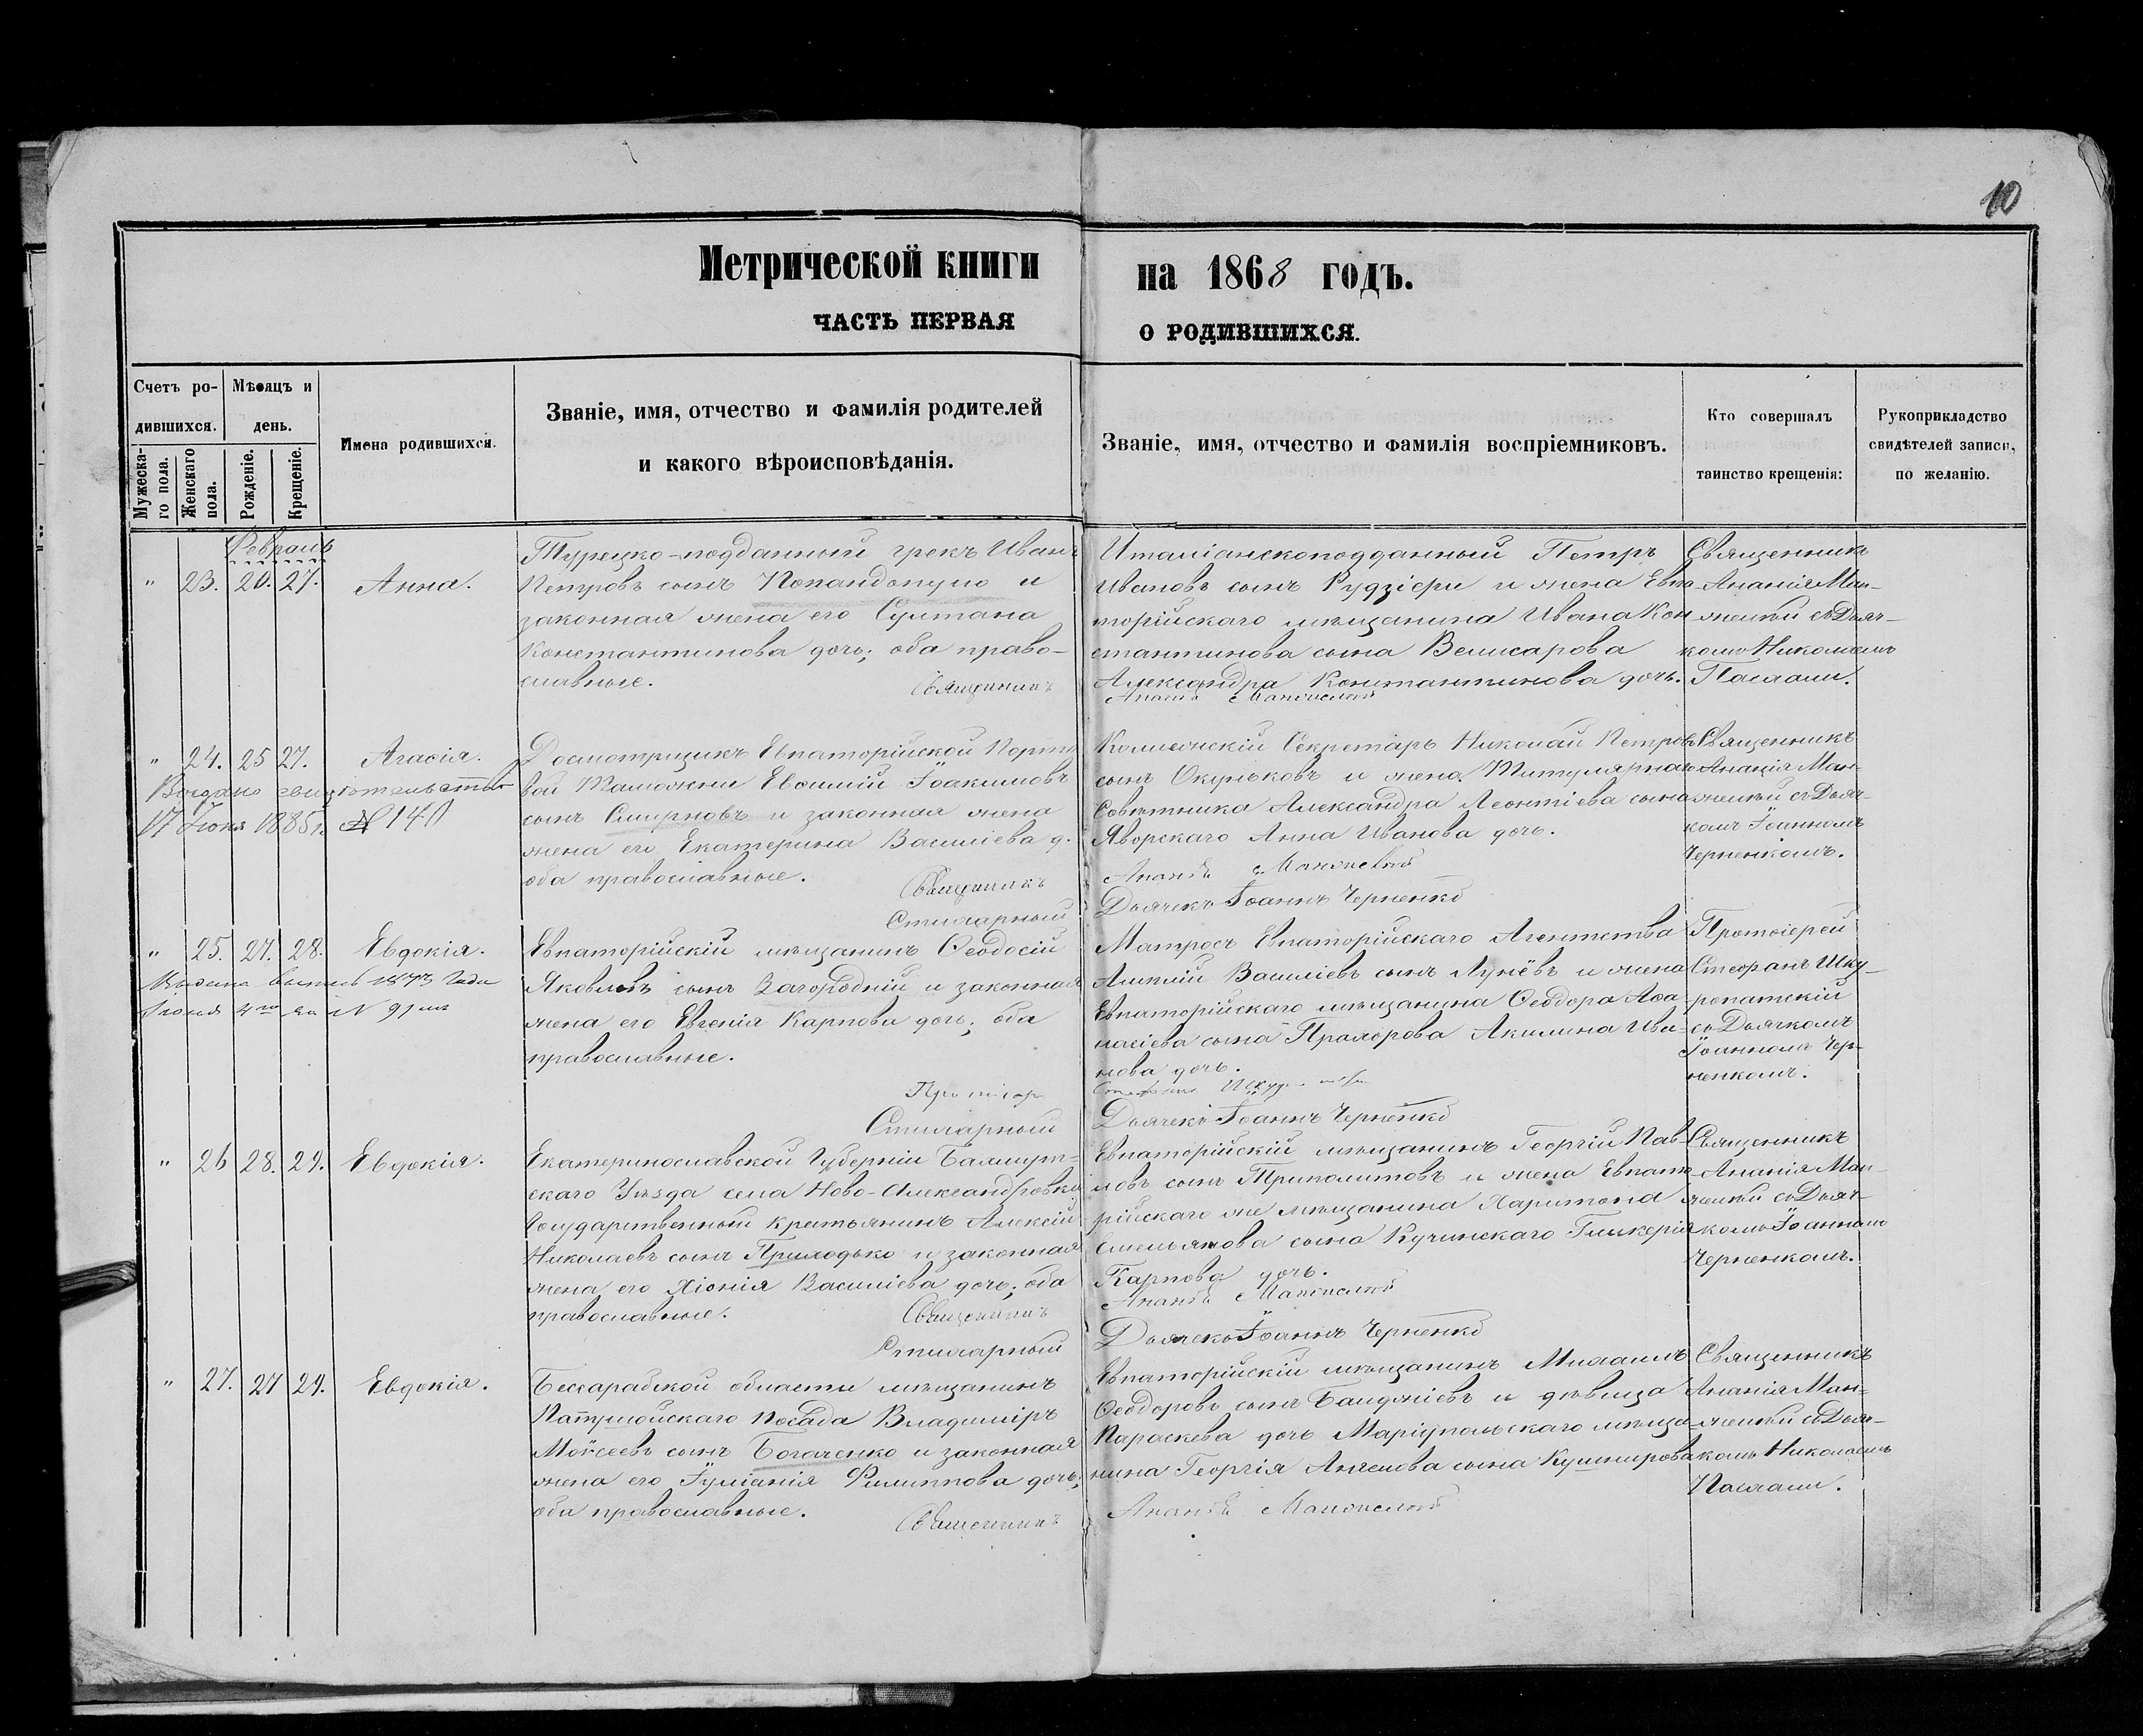 10
Метрической книги на 1868 годъ.
ЧАСТЬ ПЕРВАЯ О РОДИВШИХСЯ.
Счетъ ро-
дившихся.
Мѣсяцъ и
день.
Мужеска-
го пола.
Женскаго
пола.
Рожденіе.
Крещеніе.
Имена родившихся.
Званіе, имя, отчество и фамилія родителей
и какого вѣроисповѣданія.
Званіе, имя, отчество и фамилія воспріемниковъ.
Кто совершалъ
таинство крещенія:
Рукоприкладство
свидѣтелей записи,
по желанію.
Февраль
" 23. 20. 27. Анна.
Турецко-подданный грекъ Иванъ
Петровъ сынъ Попандопуло и
законная жена его Султана
Константинова дочь; оба право-
славные.
Священникъ
Италіанскоподданный Петръ
Ивановъ сынъ Рудзіери и жена Евпа-
торійскаго мѣщанина Ивана Кон-
стантинова сына Велисарова
Александра Константинова дочь.
Ананія
Священникъ
Ананія Ман-
желѣй съ Дьяч-
комъ Николаемъ
" 24. 25 27. Агасія.
Выдано свидѣтельство
17 Іюня 1885 г. № 140
Досмотрщикъ Евпаторійской Порто-
вой Таможни Евѳимій Іоакимовъ
сынъ Смирновъ и законная жена
жена его Екатерина Василіева д.
оба православные.
Священникъ
Коллежскій Секретарь Николай Петровъ
сынъ Окуньковъ и жена Титулярнаго
Совѣтника Александра Леонтіева сына
Яворскаго Анна Иванова дочь.
Ананія
Дьячекъ Іоаннъ Черненко
Священникъ
Ананія Ман-
желѣй съ Дьяч-
комъ Іоанномъ
Черненкомъ.
" 25. 27. 28. Евдокія.
Евпаторійскій мѣщанинъ Ѳеодосій
Яковлевъ сынъ Загородній и законная
жена его Евгенія Карпова дочь; оба
православные.
Матросъ Евпаторійскаго Агентства
Василіевъ сынъ Лунёвъ и жена
Евпаторійскаго мѣщанина Ѳеодора Аѳа-
насіева сына Прохорова Акилина Ива-
нова дочь.
Дьячекъ Іоаннъ Черненко
Протоіерей
Стефанъ Шку-
ропатскій
съ Дьячкомъ
Іоанномъ Чер-
ненкомъ.
" 26 28. 29. Евдокія.
Екатеринославской Губерніи Бахмут-
скаго Уѣзда села Ново-Александровки
Государственный крестьянинъ Алексій
Николаевъ сынъ Приходько и законная
жена его Хіонія Василіева дочь; оба
православные.
Священникъ
Евпаторійскій мѣщанинъ Георгій Пав-
ловъ сынъ Триполитовъ и жена Евпато-
рійскаго же мѣщанина Харитона
Емельянова сына Кучинскаго Гликерія
Карпова дочь.
Ананія
Дьячекъ Іоаннъ Черненко
Священникъ
Ананія Ман-
желѣй съ Дьяч-
комъ Іоанномъ
Черненкомъ.
" 27. 27 29. Евдокія.
Бессарабской области мѣщанинъ
посада Владиміръ
Моѵсеевъ сынъ Богаченко и законная
жена его Іуліанія Филиппова дочь;
оба православные.
Священникъ
Евпаторійскій мѣщанинъ Михаилъ
Ѳеодоровъ сынъ и дѣвица
Параскева дочь Маріупольскаго мѣща-
нина Георгія Ангелова сына Кушнирова
Ананія
Священникъ
Ананія Ман-
желѣй съ Дьяч-
комъ Николаемъ